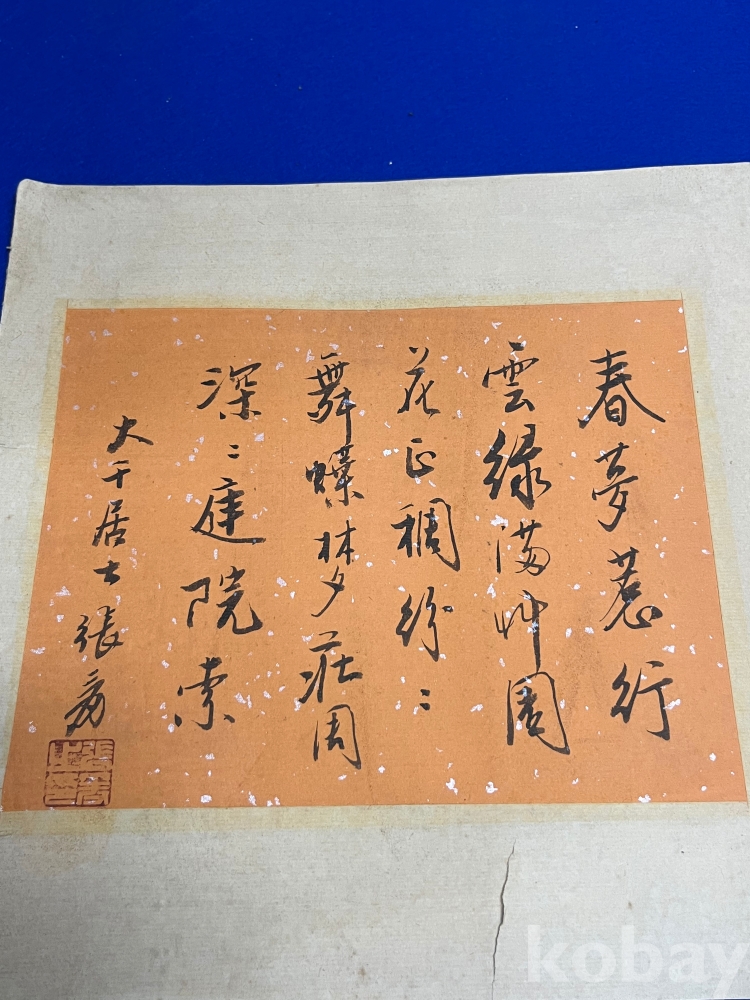 春夢惹行
雲綠滿艸園
花正稠紛〻
舞蝶夢莊周
深〻庭院索
大千居士張爰
張爰
kobay